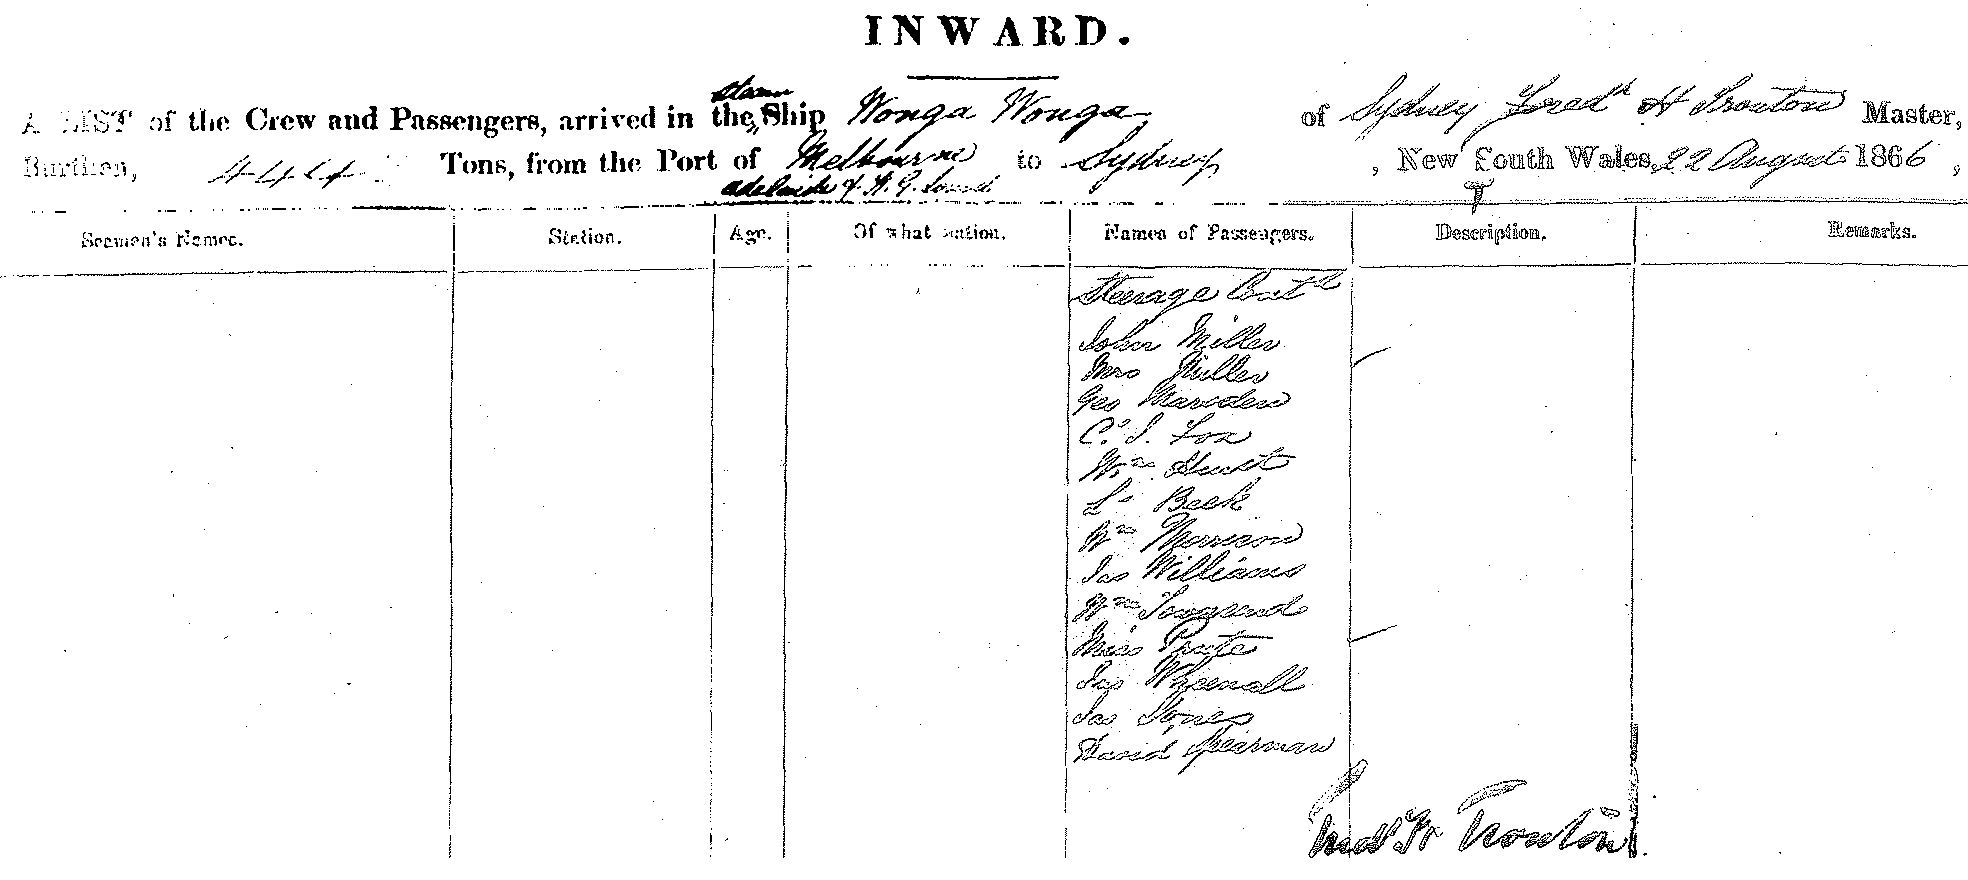 INWARD.
A LIST of the Crew and Passengers, arrived in the Steam Ship Wonga Wonga of Sydney Fredk H Trouton Master,
Burthen, 444 Tons, from the Port of Melbourne to Sydney, New South Wales, 22 August 1866,
Adelaide & K. G. Sound
Seamen's Names. Station. Age. Of what nation. Names of Passengers. Description. Remarks.
Steerage Contd
John Miller
Mrs Miller
Geo Marsden
C. I. Fox
Wm Hurst
L. Beek
Wm Morrison
Jas Williams
Wm Townsend
Miss
Jas
Jas Jones
David Spearman
Fredk H Trouton